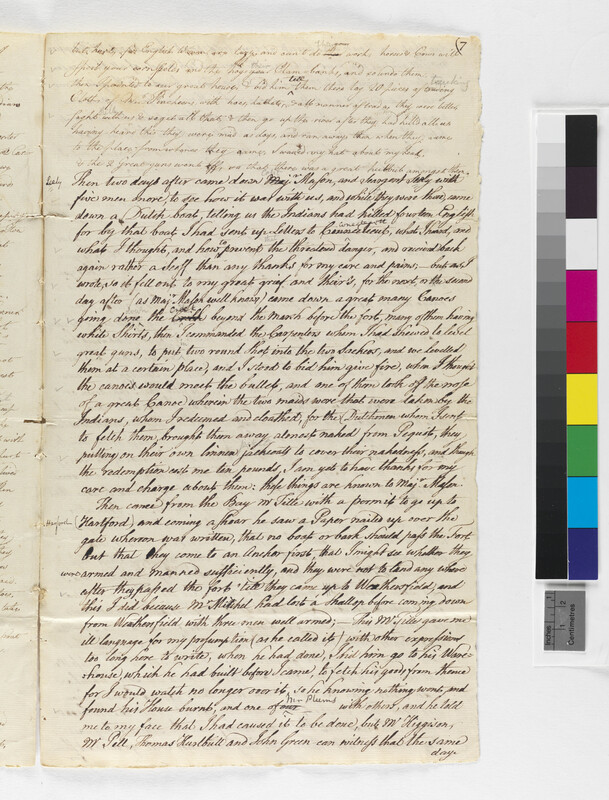 7
but, hearts, for English women are lazy, and can't do work, horses & Cows will
spoil your cornfields and the hogs their Clam-banks, and so undo them
then I pointed to our great house & bid him tell them there lay 20 pieces of trucking
Cloth, of Mr. Pincheons, with hoes, hatchets, & all manner of trade, they were better
fight with us & so get all that & then go up the river after they had killed all us
having heard this they were mad as dogs, and ran away, then when they came
to the place from whence they came, I waved my hat about my head,
& the 2 Great guns went off, so that there was a great hubbub amongst them.
Then two days after came down Majr. Mason, and Sergent Sely with
Sealy
five men more, to see how it was with us, and while they were there, came
down a Dutch boat, telling us the Indians had killed fourteen English
for by that boat I had sent up Letters to Connecticut, what I heard, and
what I thought, and how to prevent the threatened danger, and received back
again rather a scoff than any thanks for my care and pains;—but as I
wrote, so it fell out to my great grief and their's, for the next, or the second
day after (as Majr. Mason well knows) came down a great many Canoes
going down the Creek beyond the Marsh before the fort, many of them having
white Shirts, then I commanded the Carpenters whom I had shewed to level
great guns, to put two round Shot into the two Sackers, and we levelled
them at a certain place, and I stood to bid him give fire, when I thought
the canoes would meet the bullet, and one of them took off the nose
of a great Canoe wherein the two maids were that were taken by the
Indians, whom I redeemed and cloathed, for the Dutchmen whom I sent
to fetch them, brought them away almost naked from Pequit, they
putting on their own linnen jackeats to cover their nakedness, and though
the redemption cost me ten pounds, I am yet to have thanks for my
care and charge about them: these things are known to Majr. Mason.
Then came from the Bay Mr Tille with a permit to go up to
Harford (Hartford) and coming a shoar he saw a Paper nailed up over the
gate whereon was written, that no boat or bark should pass the Fort
but that they come to an Anchor first that I might see whether they
were armed and manned sufficiently, and they were not to land any where
after they passed the fort 'till they came up to Weathersfield, and
this I did because Mr. Mitchel had lost a shallop before coming down
from Weathersfield with three men well armed;— This Mr Tille gave me
ill language for my presumption (as he called it) with other expressions
too long here to write, when he had done, I bid him go to his Ware-
-house, which he had built before I came, to fetch his goods from thence
for I would watch no longer over it, so he knowing nothing went, and
found his House burnt, and one of Mr Plum's with others, and he told
me to my face that I had caused it to be done, but Mr Higgisen,
Mr Pell, Thomas Hurlbull and John Green can witness that the same
day